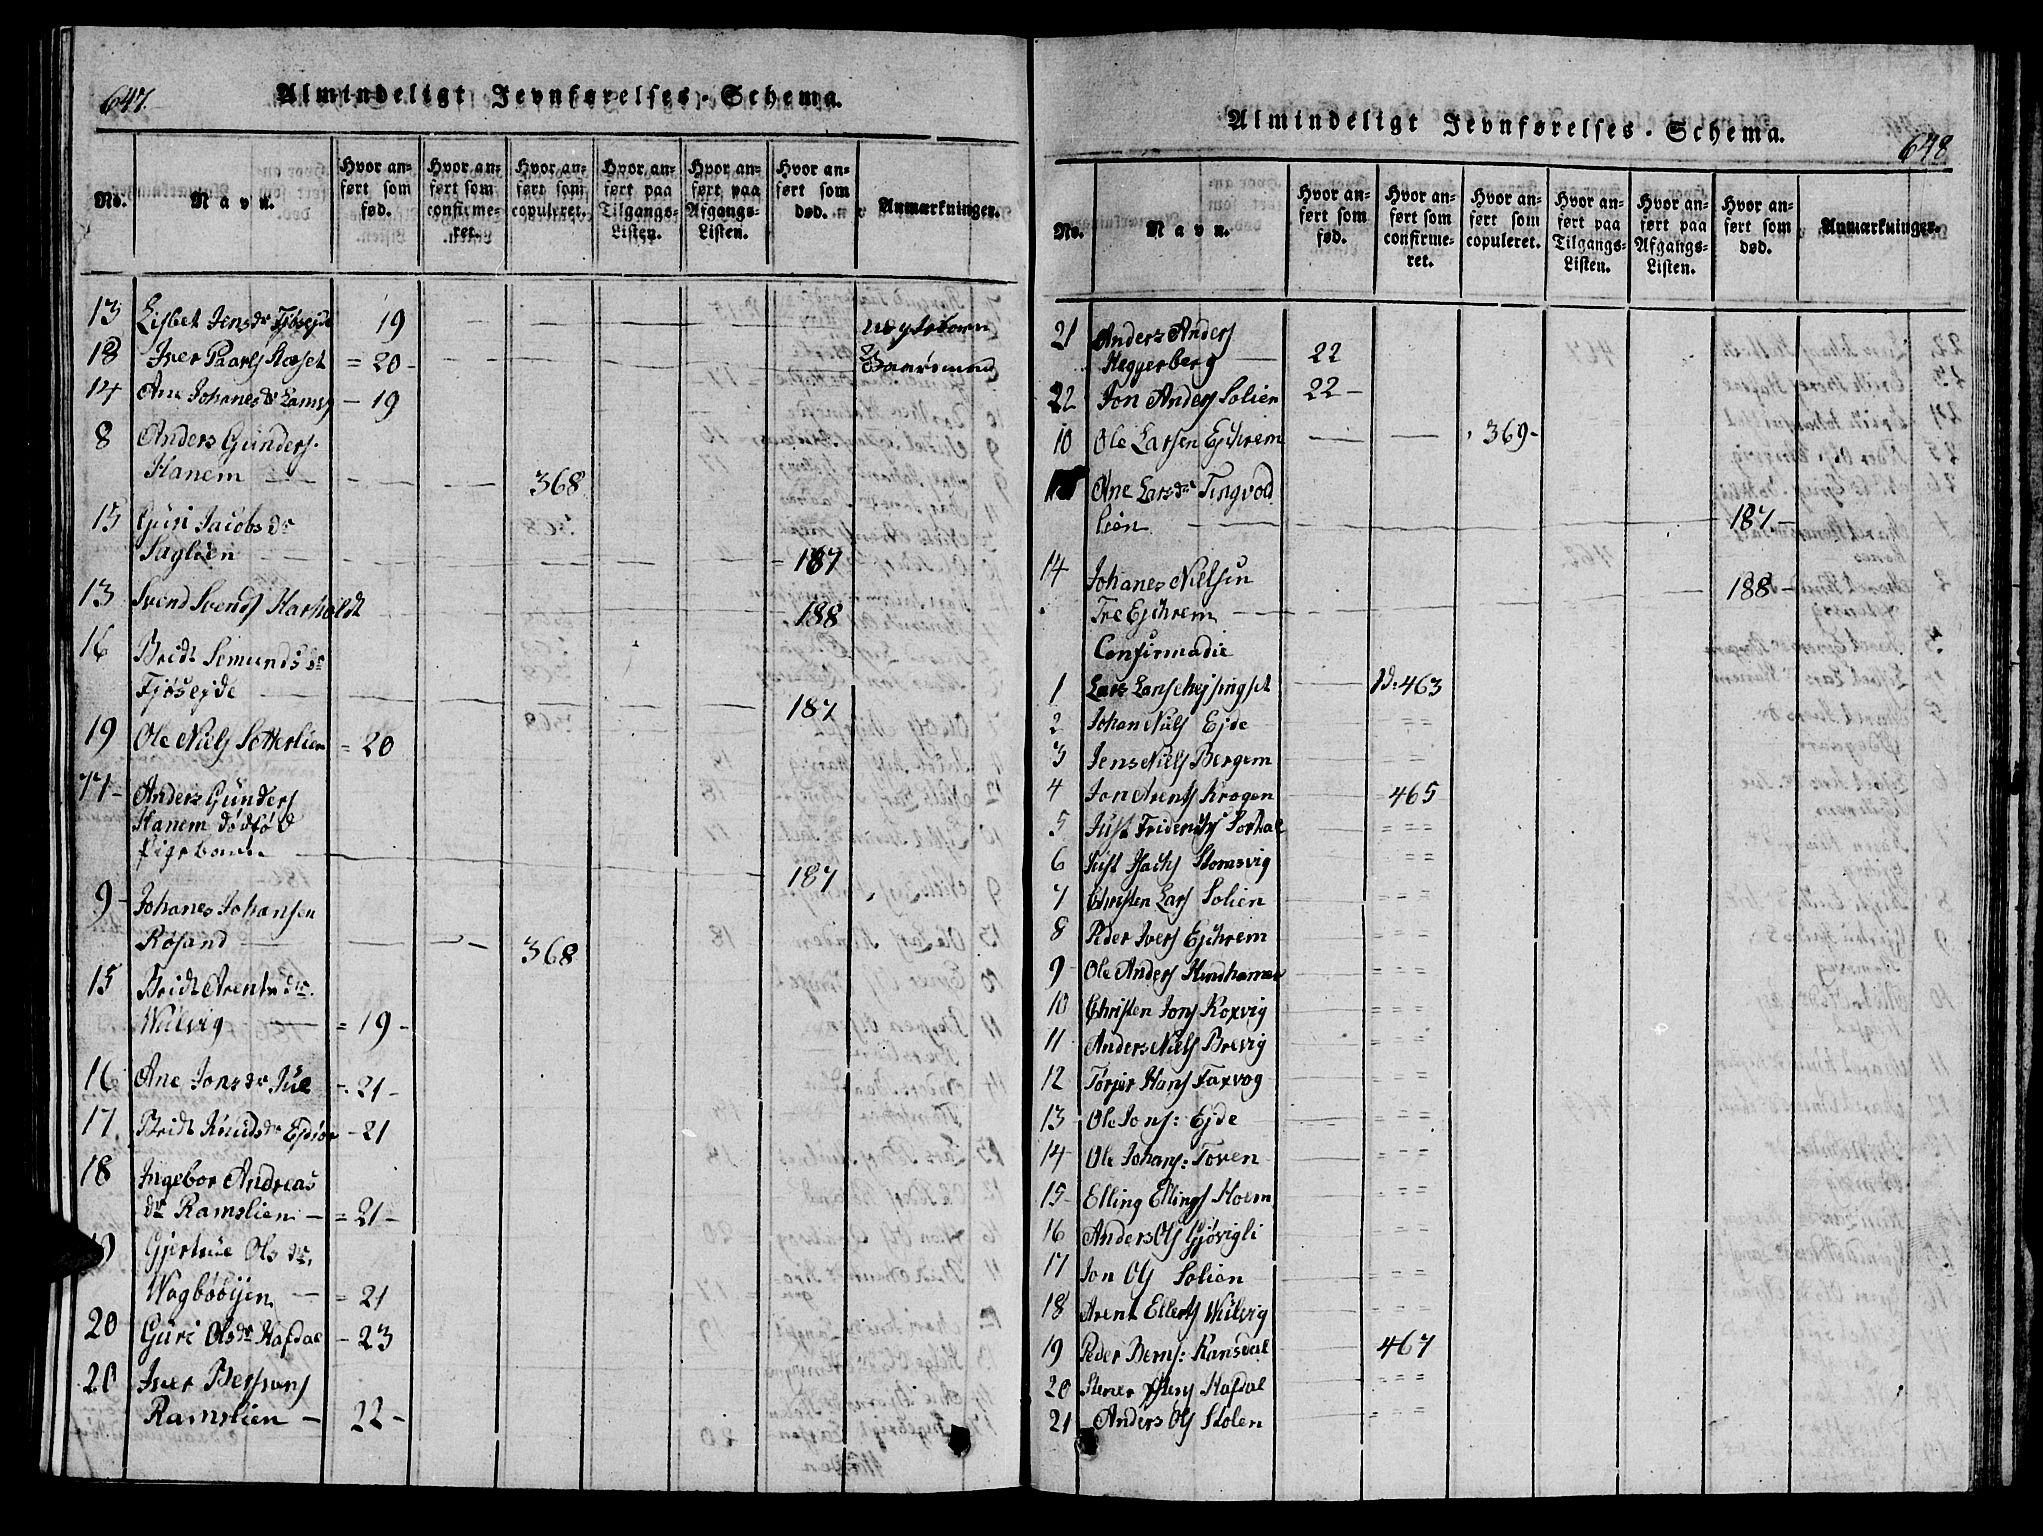 647.
Almindeligt Jevnførelses-Schema.
No.
Navn.
Hvor anført som fød.
Hvor anført som confirmeret.
Hvor anført som copuleret.
Hvor anført paa Tilgangs-Listen.
Hvor anført paa Afgangs-Listen.
Hvor anført som død.
Anmærkninger.
13 Lisbet Jensdr Tjøsejde 19
18 Iver Paarls Hæset = 20 -
14 Ane Johanesdr - 19
8 Anders Gunders.
Hanem 368
15 Guri Jacobsdr
Saglien 187
13 Svend Svends Harholdt 188
16 Bridt Semundsdr
Tjøsejde 187
19 Ole Niels Sotterlien = 20
17 - Anders Gunders
Hanem dødfød
187
9 - Johanes Johansen
Røsand 368
15 Bridt Arentsdr.
Wulvig = 19 -
16 Ane Jonsdr Jul = 21 -
17 Bridt Knudsdr - 21
18 Ingebor Andreas
dr Ramslien - = 21 -
19 Gjertrue Olsdr.
Wagbøbÿen = 21
20 Guri Olsdr Hafdal - 23
20 Iver
Ramslien - 22 -
Almindeligt Jevnførelses-Schema.
648
No.
Navn.
Hvor anført som fød.
Hvor anført som confirmeret.
Hvor anført som copuleret.
Hvor anført paa Tilgangs-Listen.
Hvor anført paa Afgangs-Listen.
Hvor anført som død.
Anmærkninger.
21 Anders Anders
Heggerberg 22
22 Jon Anders Solien 22 -
10 Ole Larsen Ejchrem 369 -
Ane Larsdr Tingvold
lien 187 -
14 Johanes Nielsen
Ire Ejchrem 188 -
Confirmadie
1 Lars 463
2 Johan Niels Ejde = =
3 Jens Niels Bergem = =
4 Jon Arents Krogen 465
5 Just Friderichs = = =
6 Just Stomsvig = = =
7 Christen Lars Solien = = =
8 Peder Ivers Ejchrem = = =
9 Ole Anders Hindhamer = = =
10 Christen Jons Koxvig = = =
11 Anders Niels Brevig = = =
12 Torjer Hans Faxvog = = =
13 Ole Jons: Ejde = = =
14 Ole Johans: Toven = = =
15 Elling Ellings Hoem = = =
16 Anders Ols Gjøvigli = = =
17 Jon Ols Solien = = =
18 Arent Ellerts Wulvig = = =
19 Peder Berns: Ransdal 467
20 Stener Hafdal = = =
21 Anders Ols Stolen = = =